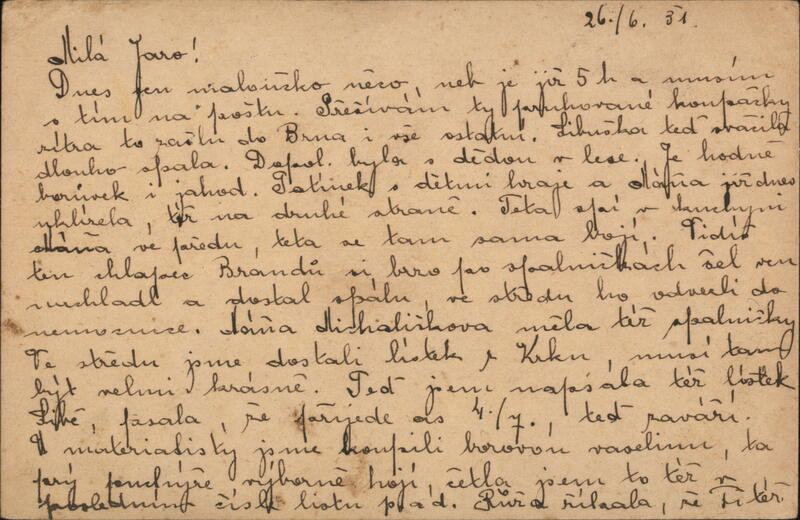 26./6. 31.
Milá Jaro!
Dnes jen maloučko něco, neb je již 5 h a musím
s tím na poštu. Přešívám ty pruhované koupačky
zítra to zašlu do Brna i vše ostatní. Libuška teď svačila
dlouho spala. Dopol. byla s dědou v lese. Je hodně
borůvek i jahod. Tatínek s dětmi hraje a Máňa již dnes
uklízela, též na druhé straně. Teta spí v kuchyni
Máňa ve předu, teta se tam sama bojí. Vidíš
ten chlapec Brandů si brzo po spalničkách šel ven
nachladl a dostal spálu, ve středu ho odvezli do
nemocnice. Máňa Michaličkova měla též spalničky
Ve středu jsme dostali lístek z Krku, musí tam
být velmi krásně. Teď jsem napsala též lístek
Libě, psala, že přijede as 4./7., teď zaváří.
U materialisty jsme koupili borovou vaselinu, ta
prý puchýře výborně hojí, četla jsem to též v
posledním čísle listu p a d. Růža říkala, že Ti též